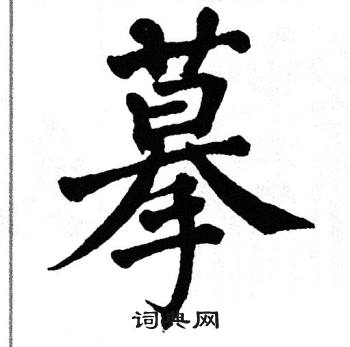 摹
词典网